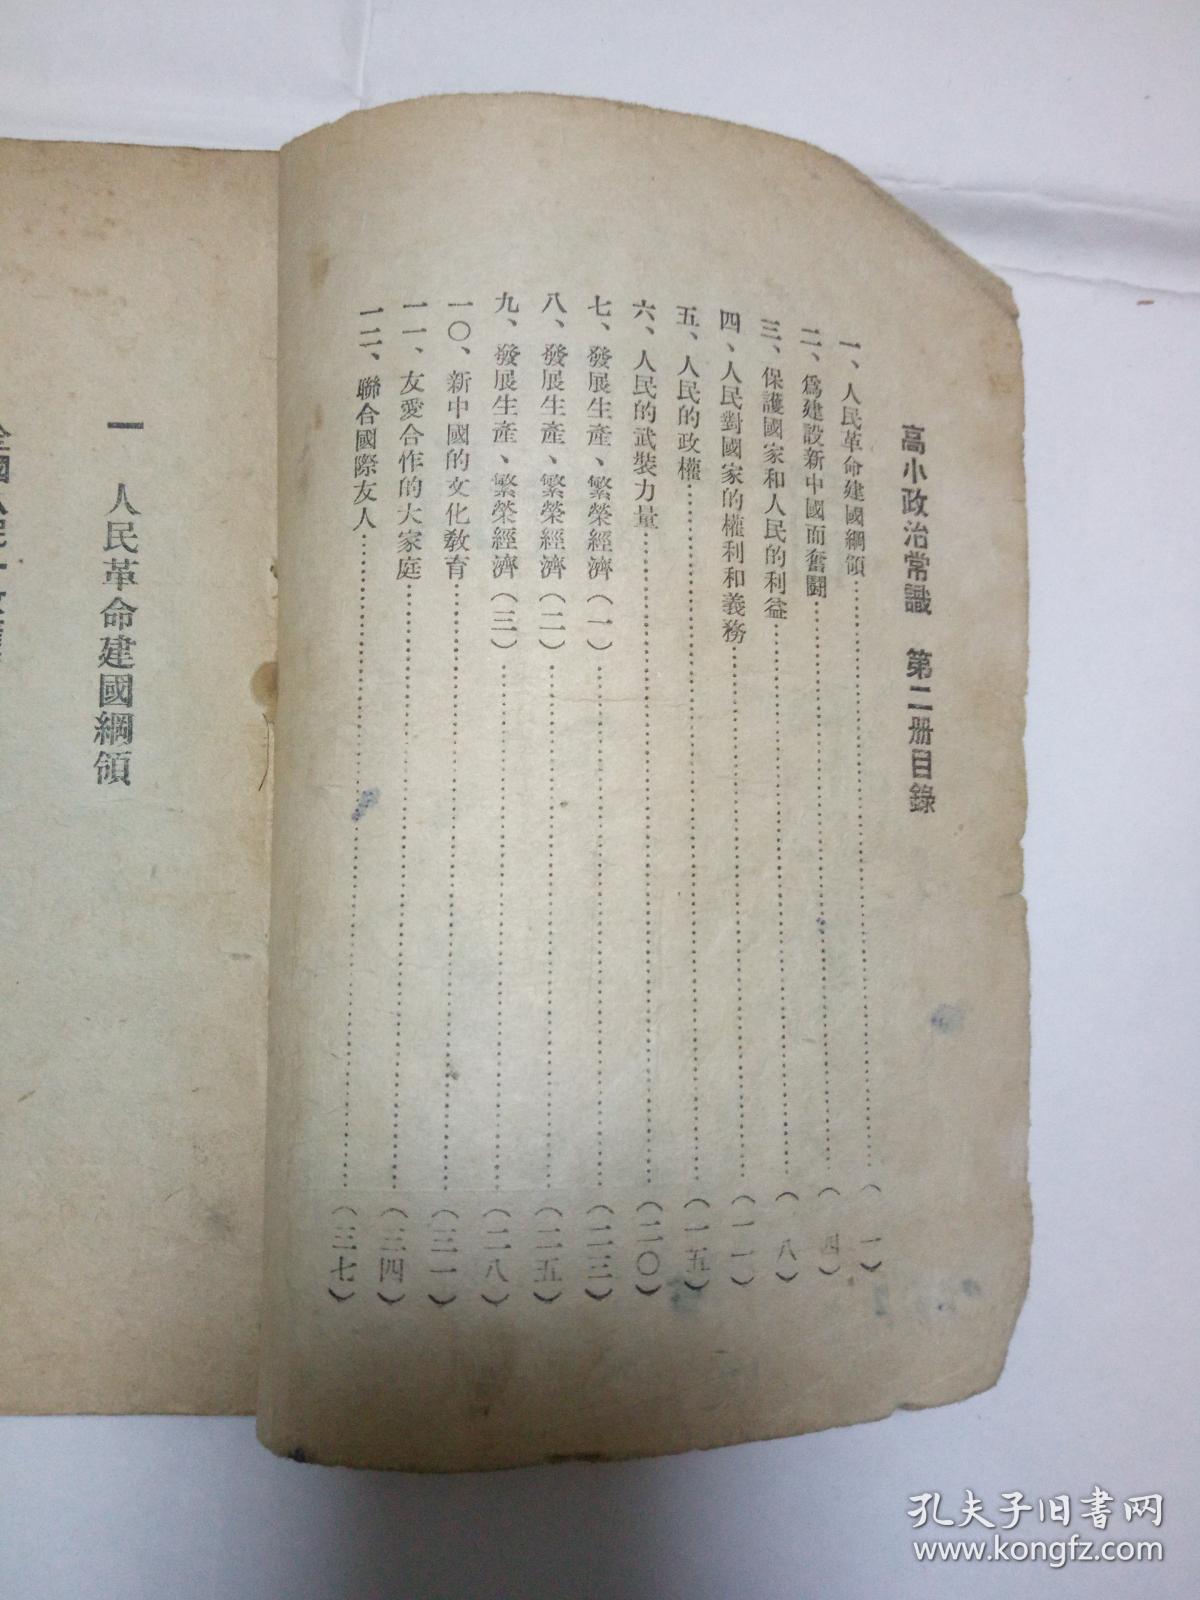 高小政治常識　第二册目錄
一、人民革命建國綱領……………………(一)
二、爲建設新中國而奮鬭……………………(四)
三、保護國家和人民的利益……………………(八)
四、人民對國家的權利和義務……………………(一一)
五、人民的政權……………………(一五)
六、人民的武裝力量……………………(二〇)
七、發展生產、繁榮經濟(一)……………………(二三)
八、發展生產、繁榮經濟(二)……………………(二五)
九、發展生產、繁榮經濟(三)……………………(二八)
一〇、新中國的文化教育……………………(三一)
一一、友愛合作的大家庭……………………(三四)
一二、聯合國際友人……………………(三七)
一　人民革命建國綱領
全國人民
孔夫子旧书网
www.kongfz.com